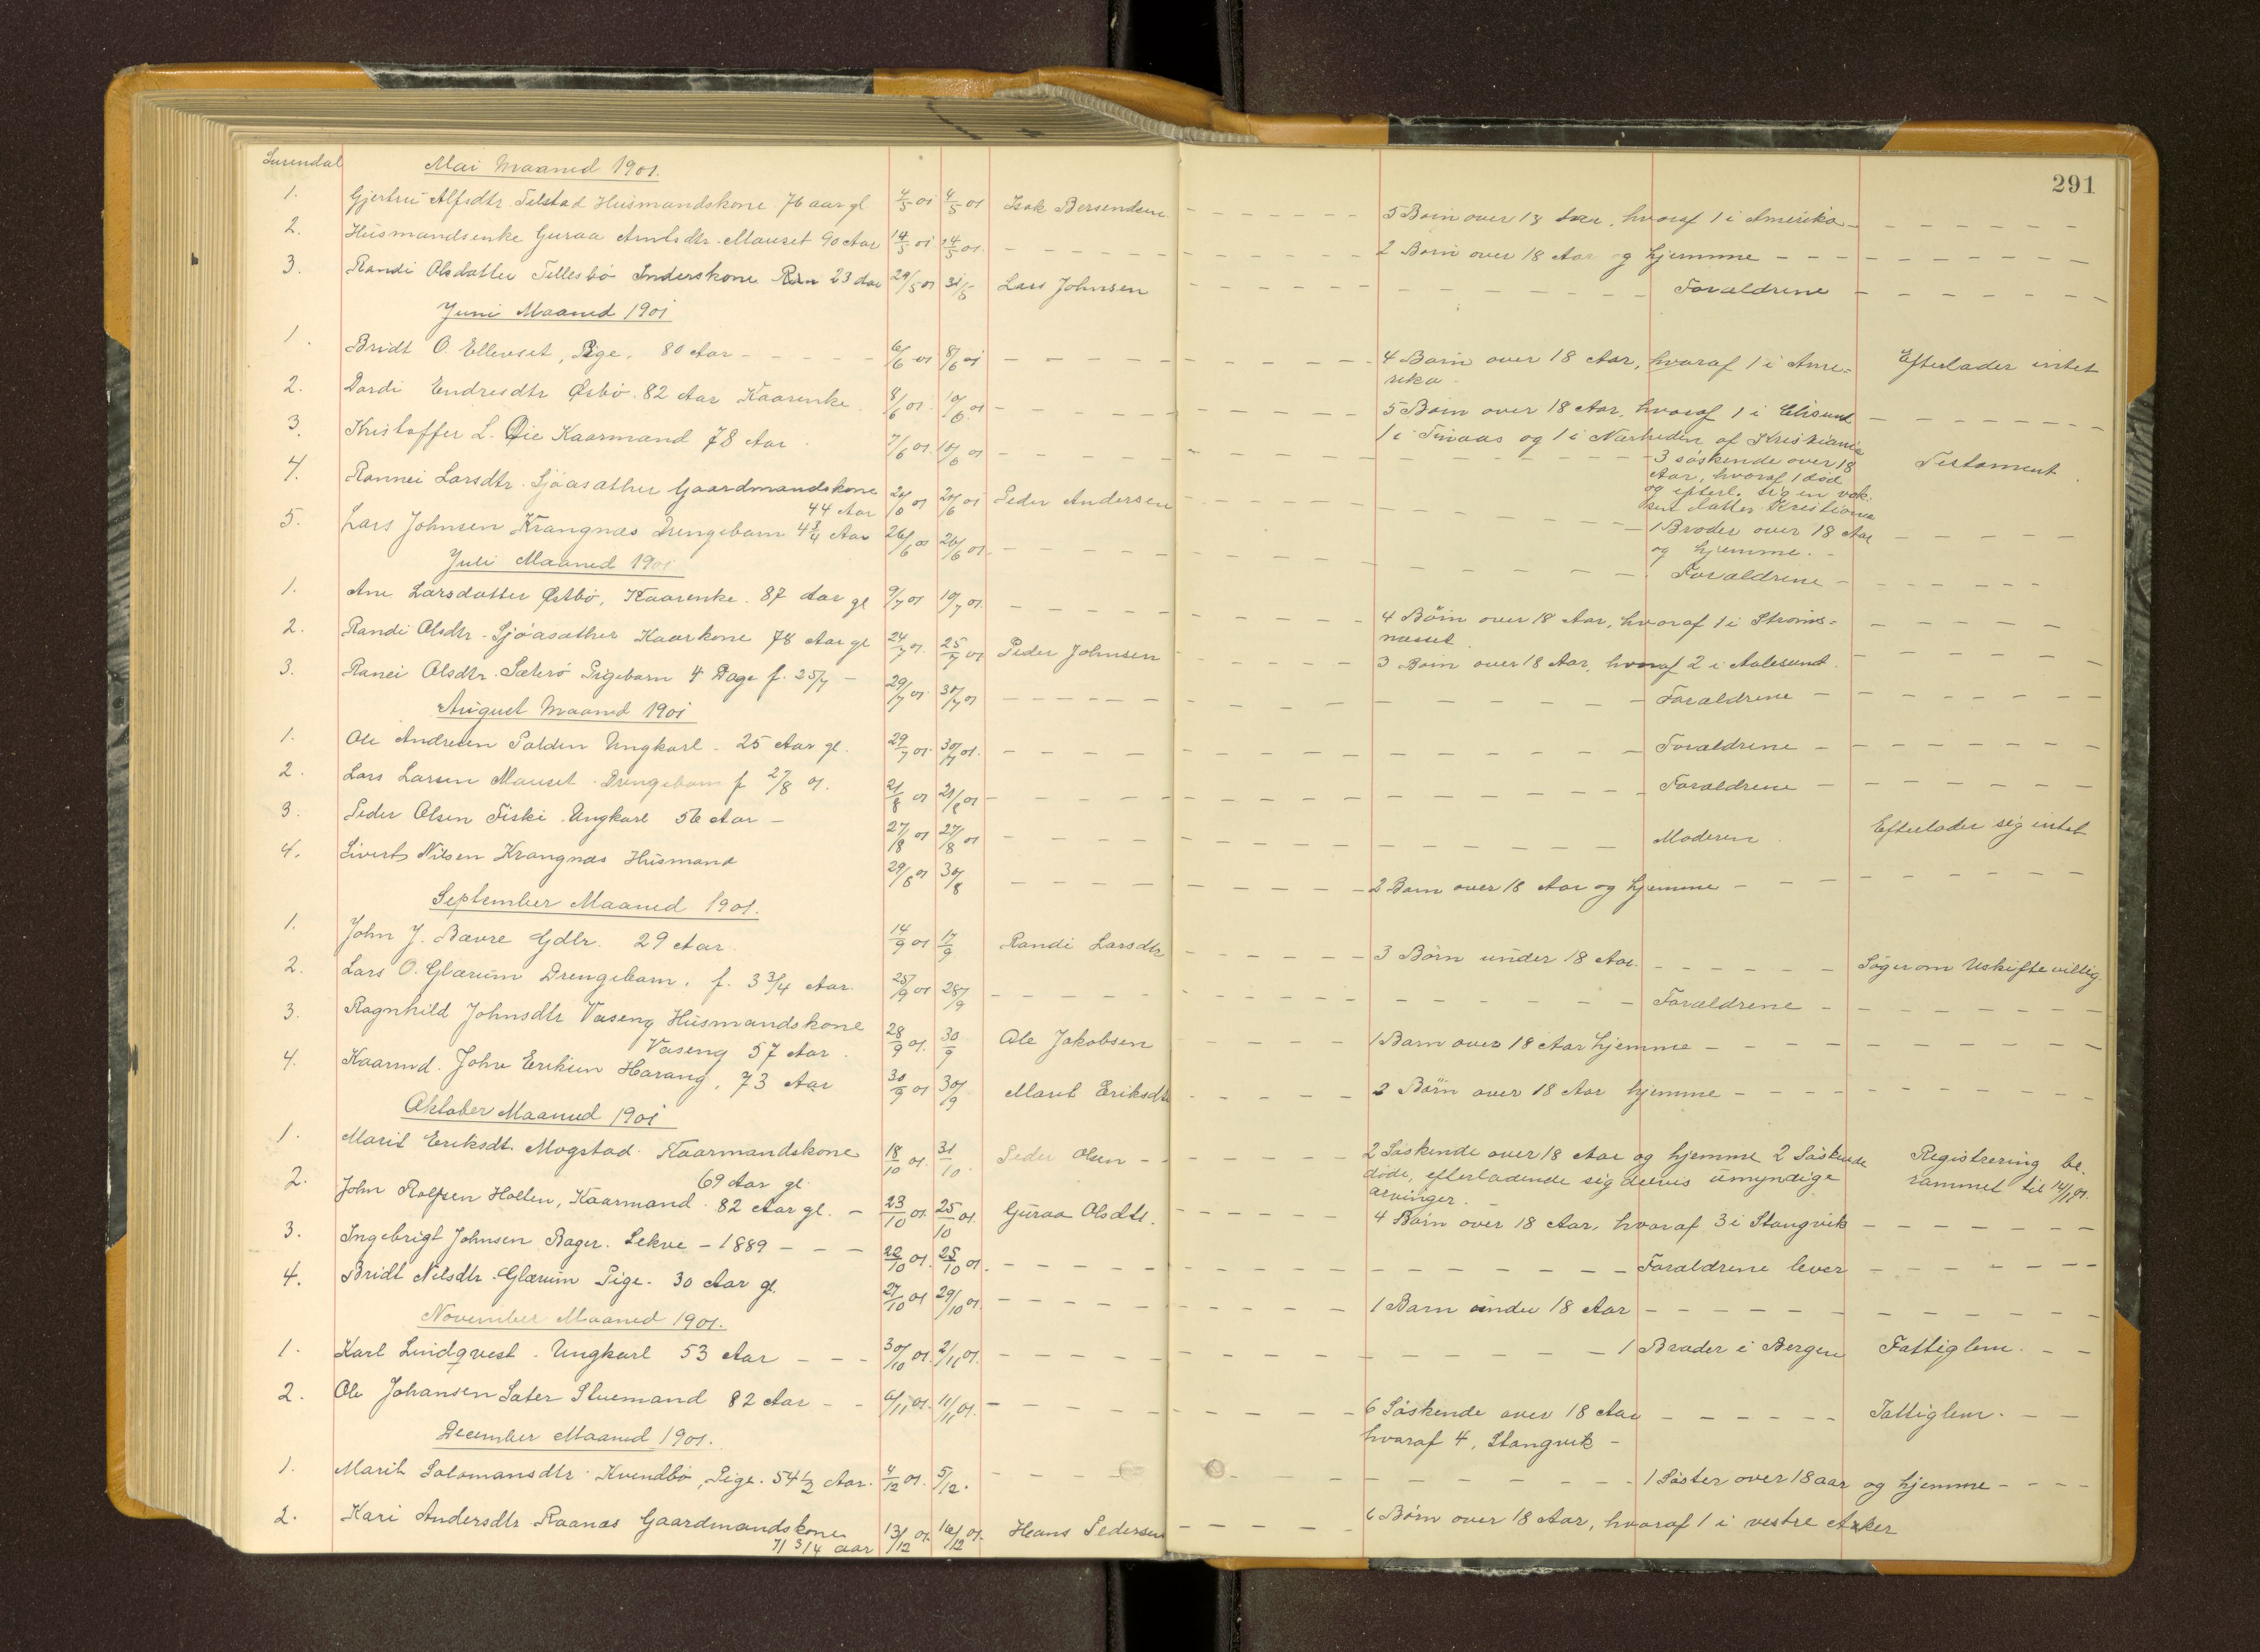 291
Surendal Mai Maaned 1901.
1. Gjertru Alfsdtr. Telstad Husmandskone 76 aar gl 4/5 01 4/5 01 Isak Bersendsen - - - 5 Børn over 18 Aar, hvoraf 1 i Amerika - - -
2. Husmandsenke Guraa Arntsdtr. Mauset 90 Aar 14/5 01 14/5 01. - - - 2 Børn over 18 Aar og hjemme - - -
3. Randi Olsdatter Tellesbø Inderskone 23 Aar 29/5 01 31/5 Lars Johnsen - - - Forældrene - - -
Juni Maaned 1901
1. Bridt O. Ellevset, Pige. 80 Aar - - - 6/6 01 8/6 01 - - - 4 Børn over 18 Aar, hvoraf 1 i Ame= Efterlader intet
rika -
2. Dordi Endresdtr Østbø. 82 Aar Kaarenke. 8/6 01. 10/6 01 - - - 5 Børn over 18 Aar, hvoraf 1 i - - -
1 i og 1 i Nærheden af Kristiania
3. Kristoffer L. Øie Kaarmand 78 Aar. 7/6 01. 10/6 01 - - - 3 søskende over 18 Testament.
Aar, hvoraf 1 død
og efterl. sig en vok.
sen datter Kristiania
4. Rannei Larsdtr. Sjøasæther Gaardmandskone 24/6 01 24/6 01 Peder Andersen - - - 1 Broder over 18 Aar - - -
44 Aar og hjemme. -
5. Lars Johnsen Krangnæs Drengebarn 4 3/4 Aar 26/6 01 26/6 01. - - - Forældrene - - -
Juli Maaned 1901
1. Ane Larsdatter Østbø, Kaarenke. 87 Aar gl 9/7 01 10/7 01. - - - 4 Børn over 18 Aar, hvoraf 1 i Strøms= - - -
næsset
2. Randi Olsdtr. Sjøasæther Kaarkone 78 Aar gl 24/7 01. 25/7 01 Peder Johnsen - - - 3 Børn over 18 Aar, hvoraf 2 i Aalesund.
3. Ranei Olsdtr. Sæterø Pigebarn 4 Dage f. 25/7 - 29/7 01. 30/7 01 - - - Forældrene - - -
August Maaned 1901
1. Ole Andresen Polden Ungkarl. 25 Aar gl. 29/7 01. 30/7 01. - - - Forældrene - - -
2. Lars Larsen Mauset. Drengebarn f 27/8 01. 21/8 01 21/8 01 - - - Forældrene - - -
3. Peder Olsen Fiske Ungkarl 56 Aar - 27/8 01 27/8 01 - - - Moderen. Efterlader sig intet
4. Sivert Nilsen Krangnæs Husmand 29/8 01 30/8 - - - 2 Barn over 18 Aar og hjemme - - -
September Maaned 1901.
1. John J. Bævre Gdbr. 29 Aar. 14/9 01 17/9 Randi Larsdtr - - - 3 Børn under 18 Aar. - - - Søger om Uskiftevillig.
2. Lars O. Glærum Drengebarn. f. 3 3/4 Aar. 25/9 01 28/9 - - - Forældrene - - -
3. Ragnhild Johnsdtr Vaseng Husmandskone 28/9 01. 30/9 Ole Jakobsen - - - 1 Barn over 18 Aar hjemme - - -
Vaseng 57 Aar.
4. Kaarmd. John Eriksen Harang, 73 Aar 30/9 01 30/9 Marit Eriksdtr - - - 2 Børn over 18 Aar hjemme - - -
Oktober Maaned 1901
1. Marit Eriksdt. Mogstad. Kaarmandskone 18/10 01. 31/10. Peder Olsen - - - 2 Søskende over 18 Aar og hjemme 2 Søskende Registrering be.
69 Aar gl. døde, efterladende sig delvis umyndige rammet til 14/11 01.
arvinger.
2. John Rolfsen Hollen, Kaarmand. 82 Aar gl. - 23/10 01. 25/10 01. Guraa Olsdtr. - - - 4 Børn over 18 Aar, hvoraf 3 i Stangvik - - -
3. Ingebrigt Johnsen Bager. Lekve - 1889 - - - 22/10 01. 25/10 01. - - - Forældrene lever - - -
4. Bridt Nilsdtr. Glærum Pige. 30 Aar gl. 27/10 01 29/10 01. - - - 1 Barn under 18 Aar - - -
November Maaned 1901.
1. Karl Lindqvest. Ungkarl 53 Aar - - - 30/10 01. 2/11 01. - - - 1 Broder i Bergen Fattiglem. - -
2. Ole Johansen Sæter Stuemand 82 Aar - - 6/11 01. 11/11 01. - - - 6 Søskende over 18 Aar - - - Fattiglem. - -
hvoraf 4, Stangvik -
December Maaned 1901.
1. Marit Salamonsdtr. Kvendbø, Pige. 54 1/2 Aar. 4/12 01. 5/12. - - - 1 Søster over 18 aar og hjemme - - -
2. Kari Andersdtr. Raanæs Gaardmandskone 13/12 01. 16/12 01. Hans Pedersen - - - 6 Børn over 18 Aar, hvoraf 1 i vestre Aker
71 3/4 aar